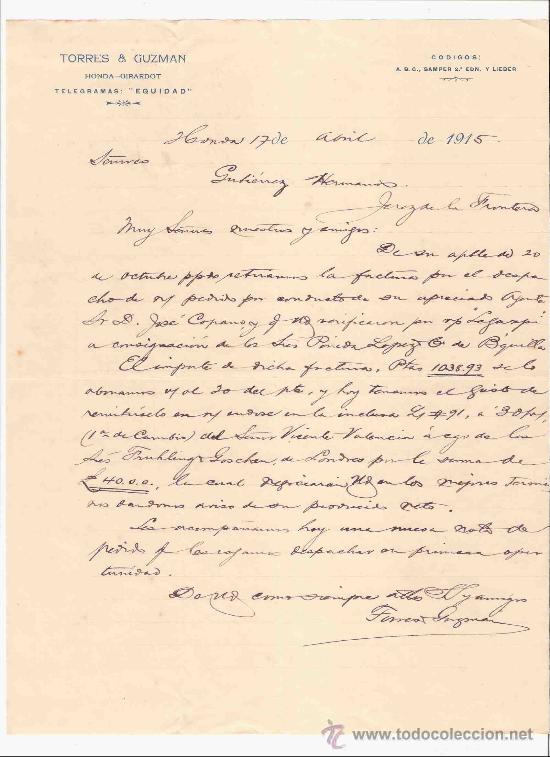 TORRES & GUZMAN
HONDA-GIRARDOT
TELEGRAMAS: "EQUIDAD"
CODIGOS:
A. B. C., SAMPER 2.ª EDN. Y LIEBER
Honda 17 de Abril de 1915.
Señores
Gutiérrez Hermanos.
Jerez de la Frontera
Muy Señores nuestros y amigos:
De su aptble de 20
de octubre ppdo retiramos la factura por el despa
cho de n/ pedido por conducto de su apreciado Agente
Sr D. José Copano y q Uds verificaron por v/p "Legazpi"
a consignación de los Sres Pineda Lopez Co de Bquilla
El importe de dicha factura, Ptas 1038.93 se lo
abonamos v/ al 30 del pte, y hoy tenemos el gusto de
remitirselo en n/ endoso en la inclusa L/ # 91, a 30 d/
(1ra de Cambio) del Señor Vicente Valencia á cgo de los
Sres Fruhling & Goschen, de Londres por la suma de
£ 40.0.0, la cual negociarán Uds en los mejores térmi
nos dandonos aviso de su producido neto.
Les acompañamos hoy una nueva nota de
pedido q les rogamos despachar en primera opor
tunidad.
De Uds como siempre attos SS y amigos
Torres & Guzmán
www.todocoleccion.net